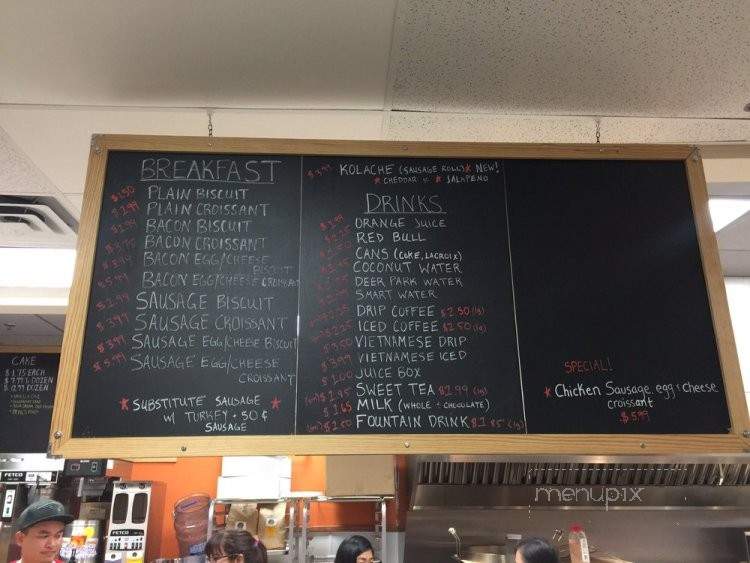 BREAKFAST
PLAIN BISCUIT
$2.99 PLAIN CROISSANT
BACON BISCUIT
BACON CROISSANT
BACON EGG/CHEESE
BISCUIT
BACON EGG/CHEESE CROISSANT
$2.99 SAUSAGE BISCUIT
$3.99 SAUSAGE CROISSANT
SAUSAGE EGG/CHEESE BISCUIT
$5.99 SAUSAGE EGG/CHEESE
CROISSANT
* SUBSTITUTE SAUSAGE *
W/ TURKEY + 50¢
SAUSAGE
KOLACHE (SAUSAGE ROLL) * NEW!
* CHEDDAR * JALAPENO
DRINKS
ORANGE JUICE
RED BULL
CANS (COKE, LACROIX)
COCONUT WATER
DEER PARK WATER
SMART WATER
DRIP COFFEE $2.50 (lg)
ICED COFFEE $2.50 (lg)
VIETNAMESE DRIP
VIETNAMESE ICED
JUICE BOX
SWEET TEA $1.99 (lg)
MILK (WHOLE + CHOCOLATE)
FOUNTAIN DRINK $1.85 (lg)
SPECIAL!
* Chicken Sausage, egg & cheese
croissant
$5.99
CAKE
$1.75 EACH
DOZEN
DOZEN
FETCO
FETCO
menupix